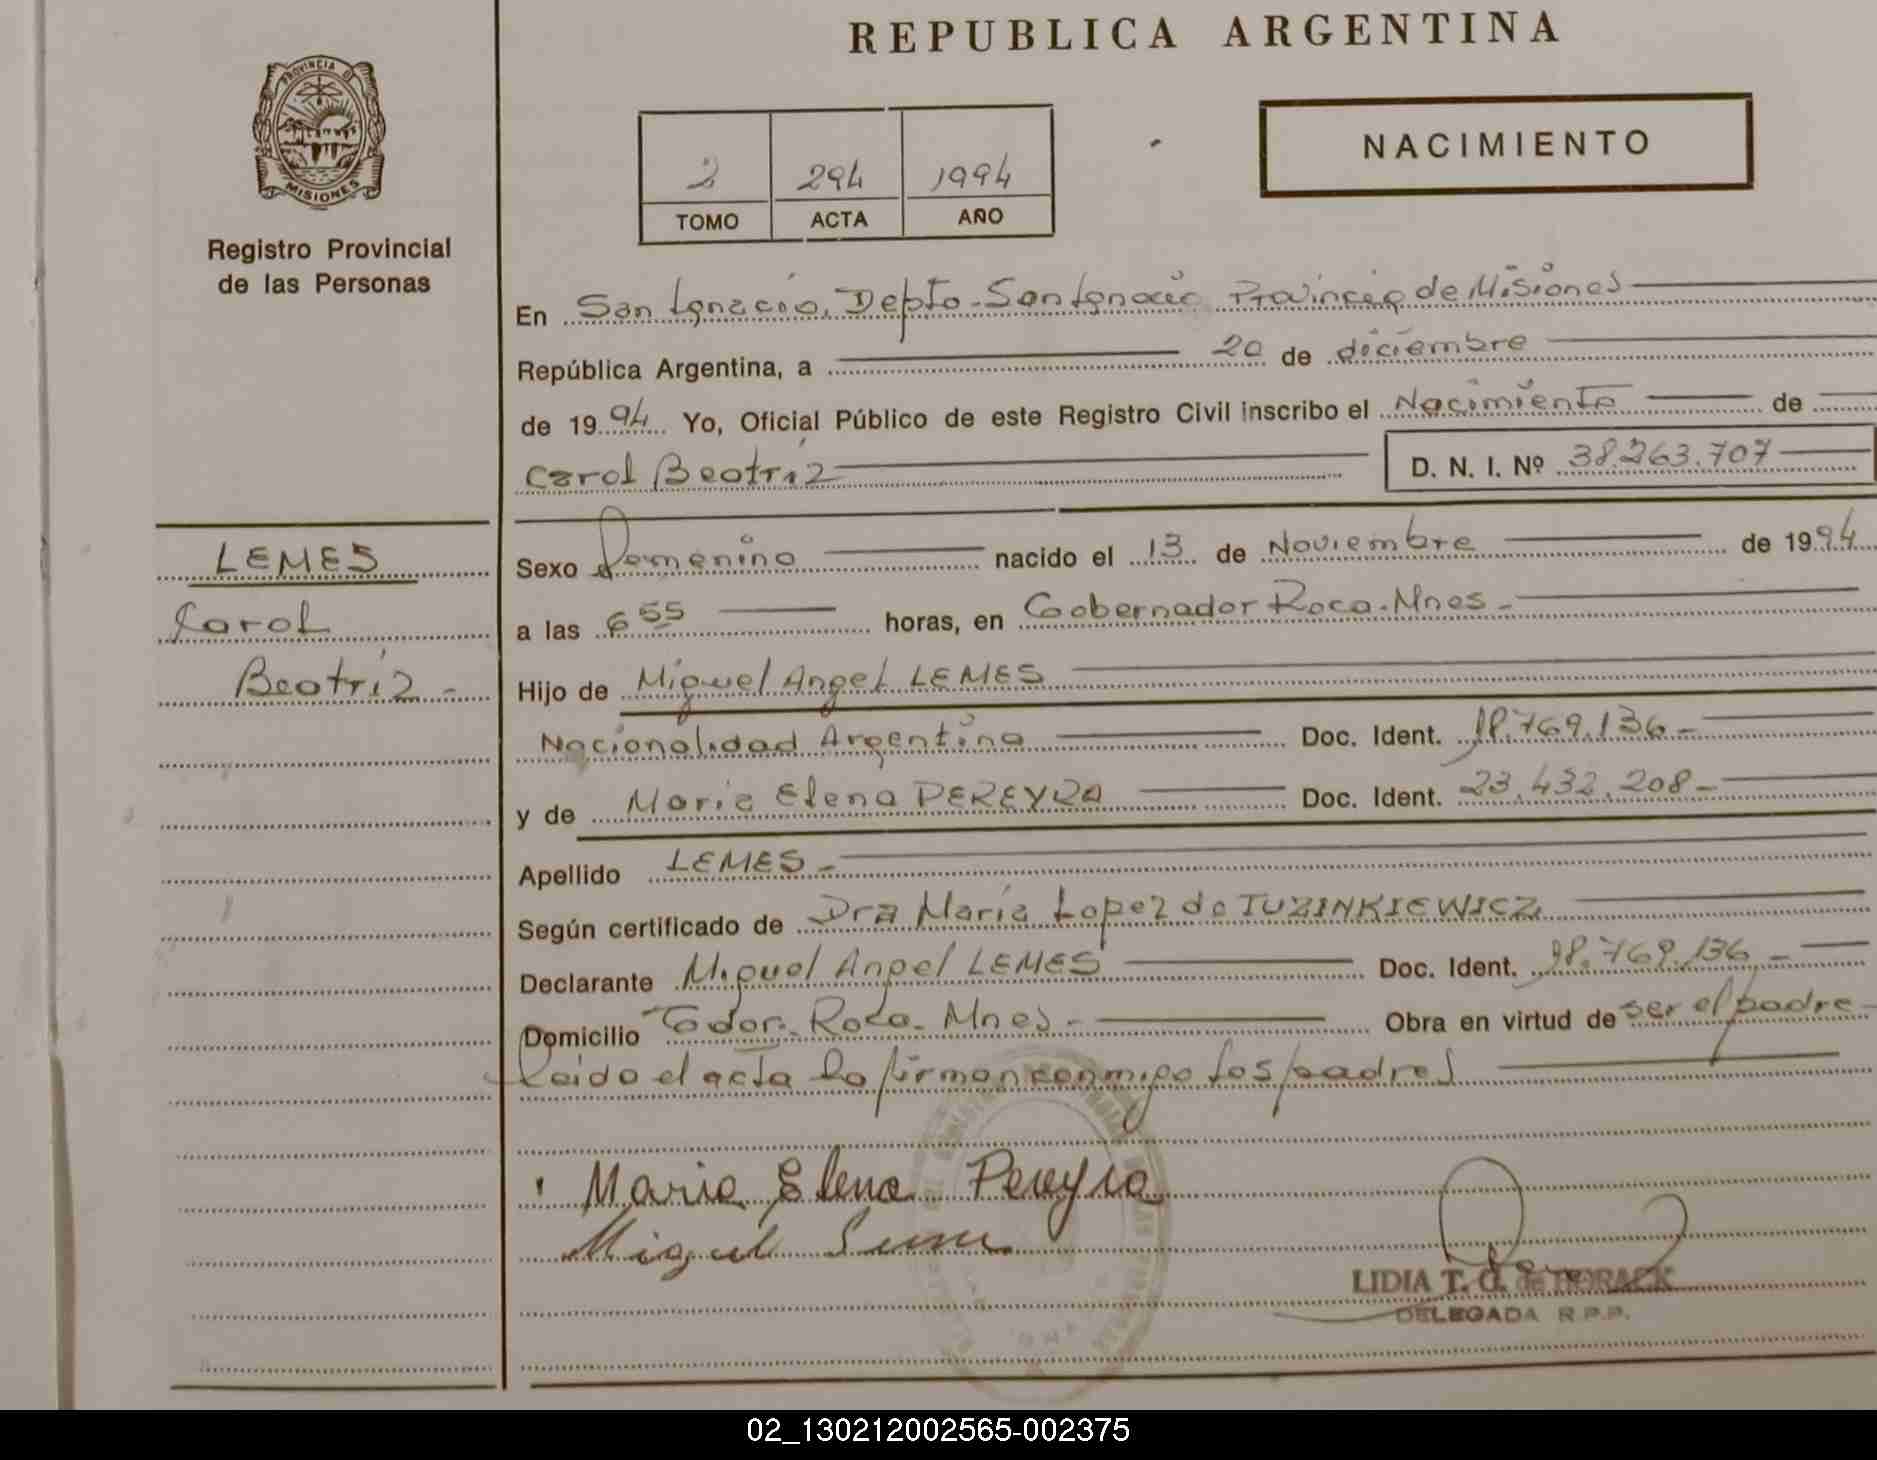 REPUBLICA ARGENTINA
PROVINCIA DE
MISIONES
Registro Provincial
de las Personas
NACIMIENTO
2 294 1994
TOMO ACTA AÑO
En San Ignacio, Depto. San Ignacio Provincia de Misiones
República Argentina, a 20 de diciembre
de 1994 Yo, Oficial Público de este Registro Civil inscribo el Nacimiento de
Carol Beatriz D. N. I. Nº 38.263.707
LEMES
Carol
Beatriz -
Sexo Femenino nacido el 13 de Noviembre de 1994
a las 6 55 horas, en Gobernador Roca. Mnes -
Hijo de Miguel Angel LEMES
Nacionalidad Argentina Doc. Ident. 18.769.136 -
y de Maria Elena PEREYRA Doc. Ident. 23.432.208 -
Apellido LEMES -
Según certificado de Dra María Lopez de TUZINKIEWICZ
Declarante Miguel Angel LEMES Doc. Ident. 18.769.136 -
Domicilio Gdor. Roca. Mnes - Obra en virtud de ser el padre -
Leido el acta la firman conmigo los padres
Maria Elena Pereyra
Miguel
LIDIA T. de
DELEGADA R.P.P.
02_130212002565-002375